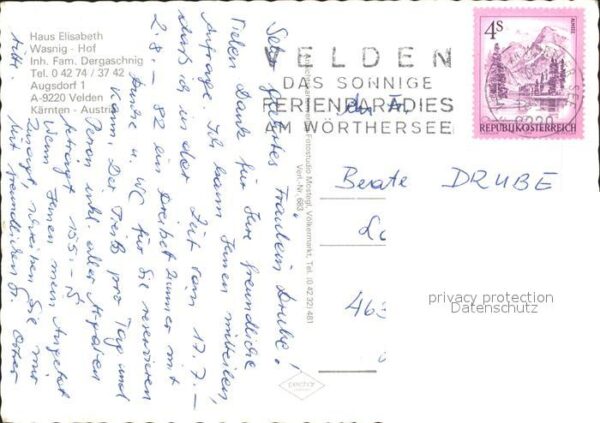 Haus Elisabeth
Wasnig - Hof
Inh. Fam. Dergaschnig
Tel. 0 42 74 / 37 42
Augsdorf 1
A-9220 Velden
Kärnten - Austria
VELDEN
DAS SONNIGE
FERIENPARADIES
AM WÖRTHERSEE
4S
ALMSEE
REPUBLIK ÖSTERREICH
9220
Sehr geehrtes Fräulein Drube!
Vielen Dank für Ihre freundliche
Anfrage. Ich kann Ihnen mitteilen,
daß ich in der Zeit vom 17.7.-
2.8.- 82 ein Dreibettzimmer mit
Dusche u. WC für Sie reservieren
kann. Der Preis pro Tag und
Person inkl. aller Abgaben
beträgt 155.- S
Wenn Ihnen mein Angebot
zusagt, schreiben Sie mir
bitte.
Mit freundlichen
Fotostudio Mostegl, Völkermarkt, Tel. (0 42 32) 481
Verl.-Nr. 683
An Frl.
Beate DRUBE
463
privacy protection
Datenschutz